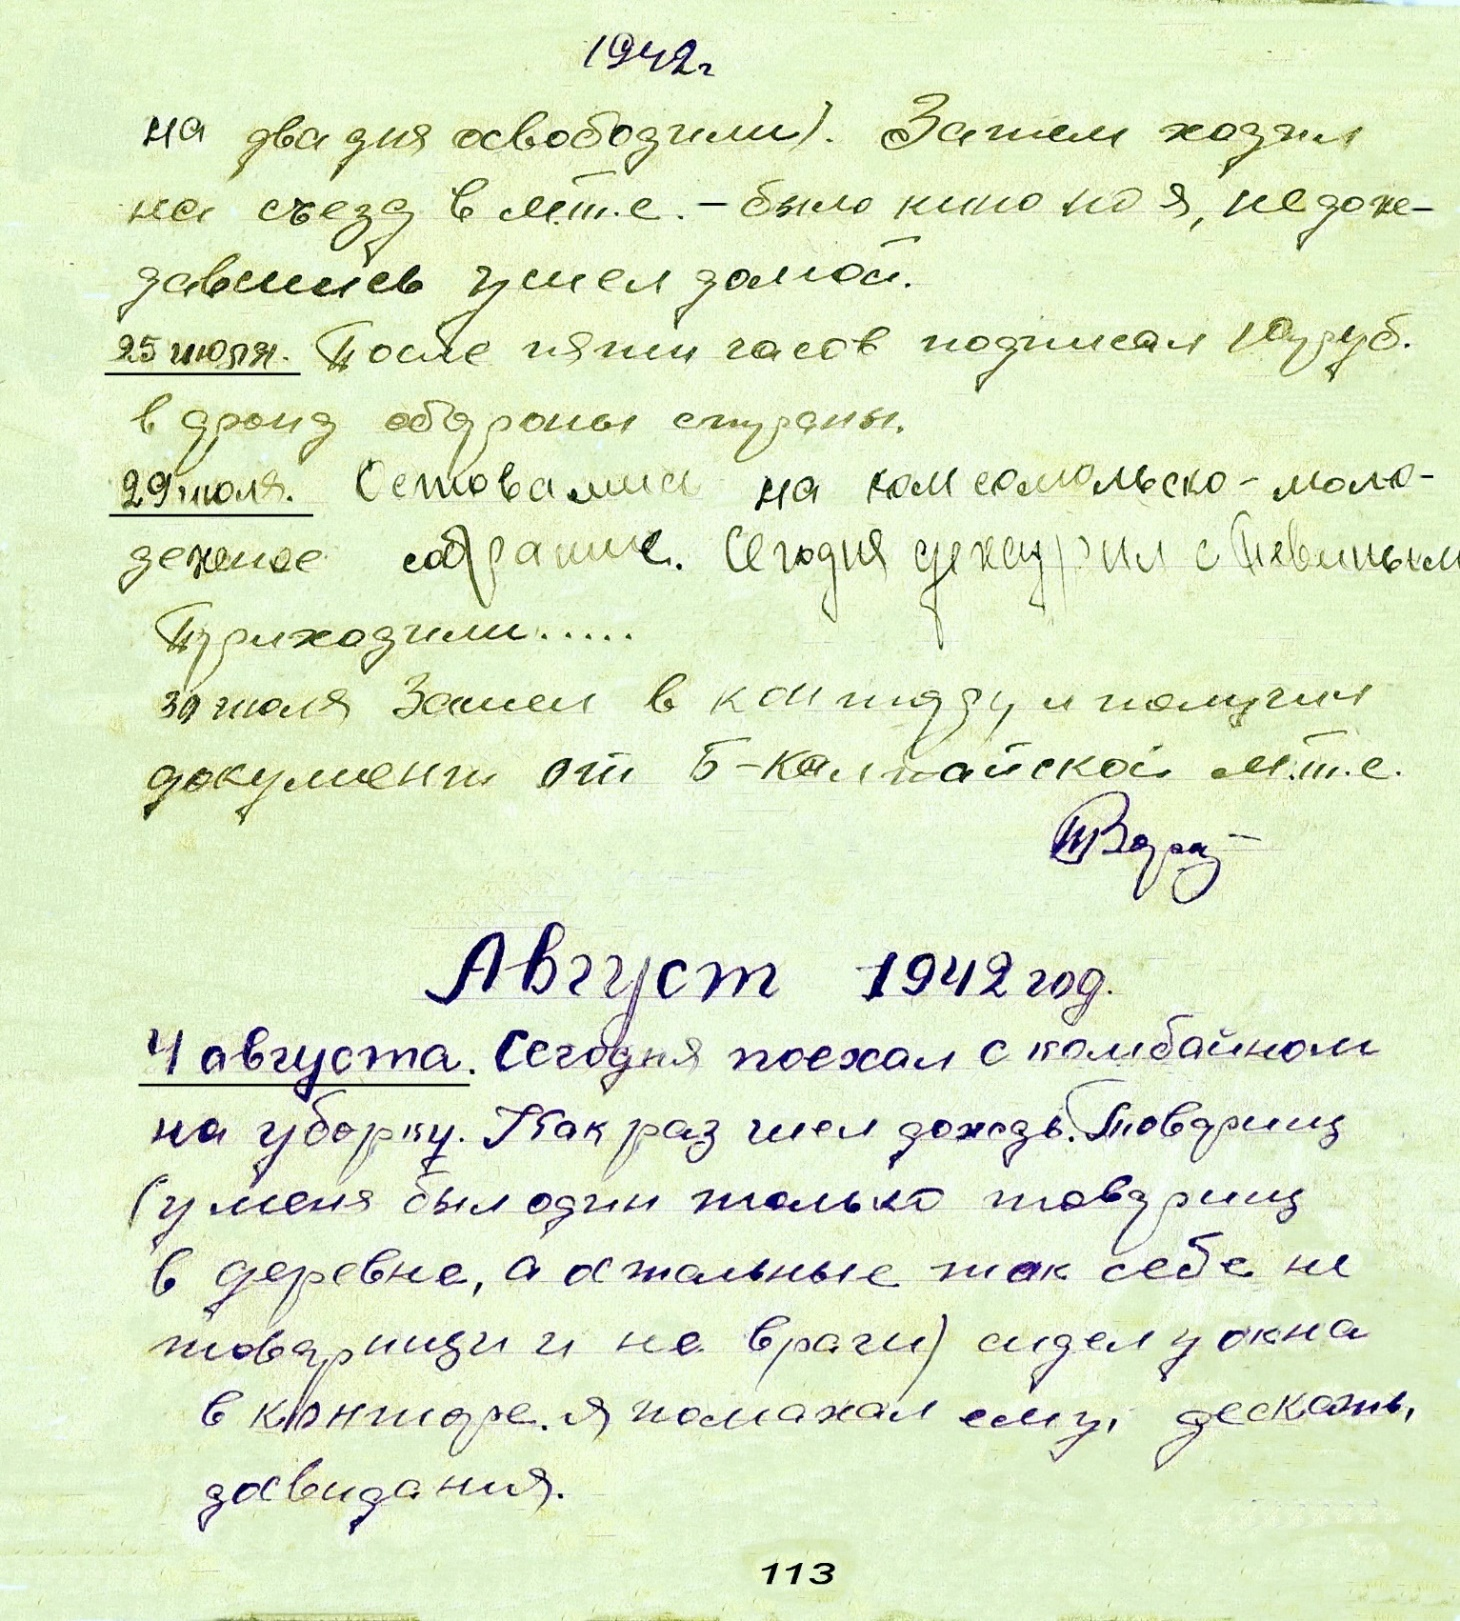 1942г
на два дня освободили). Затем ходил
на съезд в м.т.с. – было кино но я, не дож-
давшись ушел домой.
25 июля. После пяти часов подписал руб.
в фонд обороны страны.
29 июля. Оставались на комсомольско-моло-
дежное собрание. Сегодня дежурил с
Приходили.....
июля Зашел в контору и получил
документ от Б-Калтайской м.т.с.
Август 1942 год.
4 августа. Сегодня поехал с комбайном
на уборку. Как раз шел дождь. Товарищ
(у меня был один только товарищ
в деревне, а остальные так себе не
товарищи и не враги) сидел у окна
в конторе. я помахал ему, дескать,
досвидания.
113